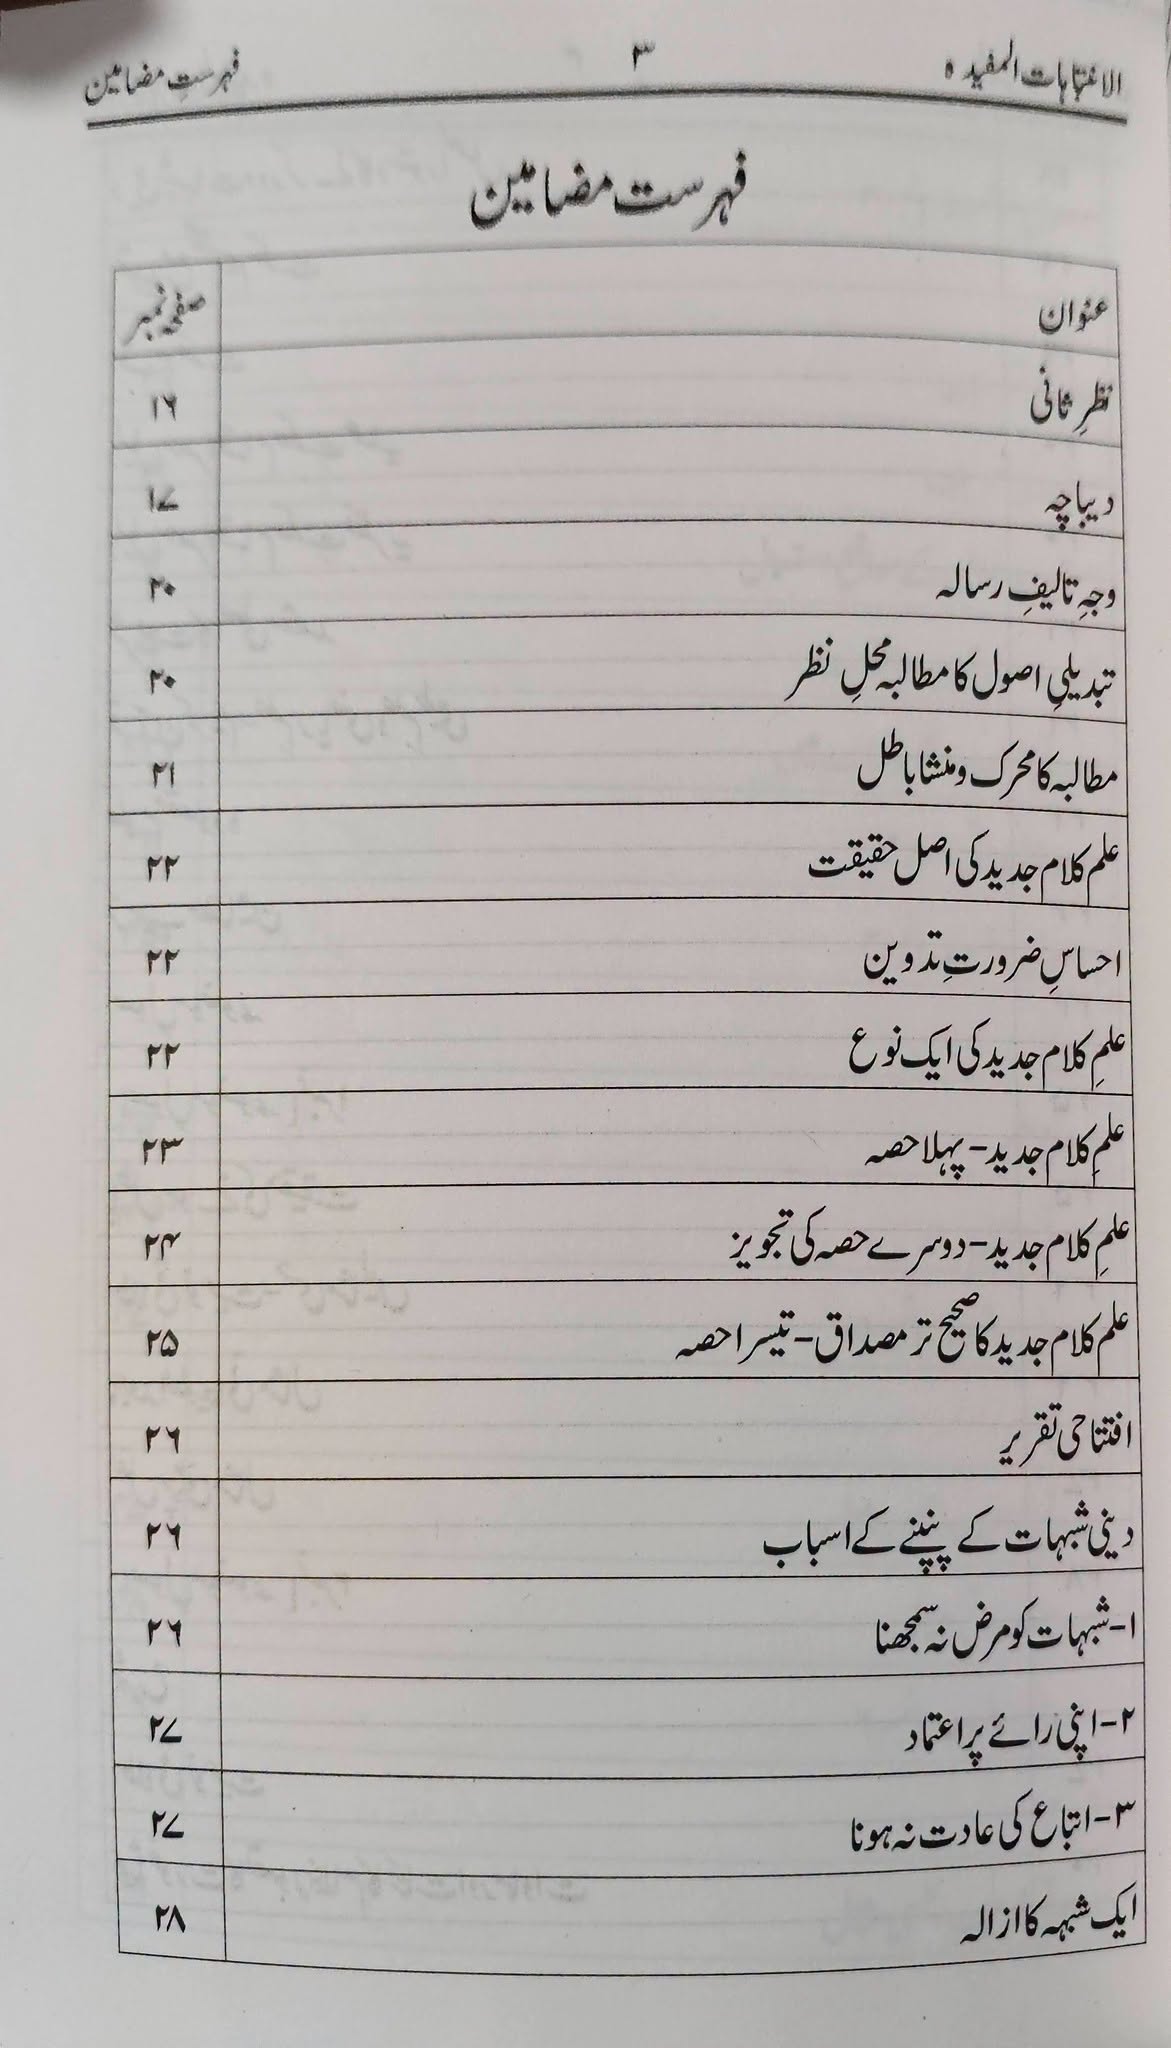 الانتباہات المفیدہ ۳ فہرستِ مضامین
فہرست مضامین
عنوان صفحہ نمبر
نظرِ ثانی ۱۶
دیباچہ ۱۷
وجہِ تالیفِ رسالہ ۲۰
تبدیلیِ اصول کا مطالبہ محلِ نظر ۲۰
مطالبہ کا محرک و منشا باطل ۲۱
علم کلام جدید کی اصل حقیقت ۲۲
احساسِ ضرورتِ تدوین ۲۲
علمِ کلام جدید کی ایک نوع ۲۲
علمِ کلام جدید – پہلا حصہ ۲۳
علمِ کلام جدید – دوسرے حصہ کی تجویز ۲۴
علم کلام جدید کا صحیح تر مصداق – تیسرا حصہ ۲۵
افتتاحی تقریر ۲۶
دینی شبہات کے پنپنے کے اسباب ۲۶
۱- شبہات کو مرض نہ سمجھنا ۲۶
۲- اپنی رائے پر اعتماد ۲۷
۳- اتباع کی عادت نہ ہونا ۲۷
ایک شبہہ کا ازالہ ۲۸